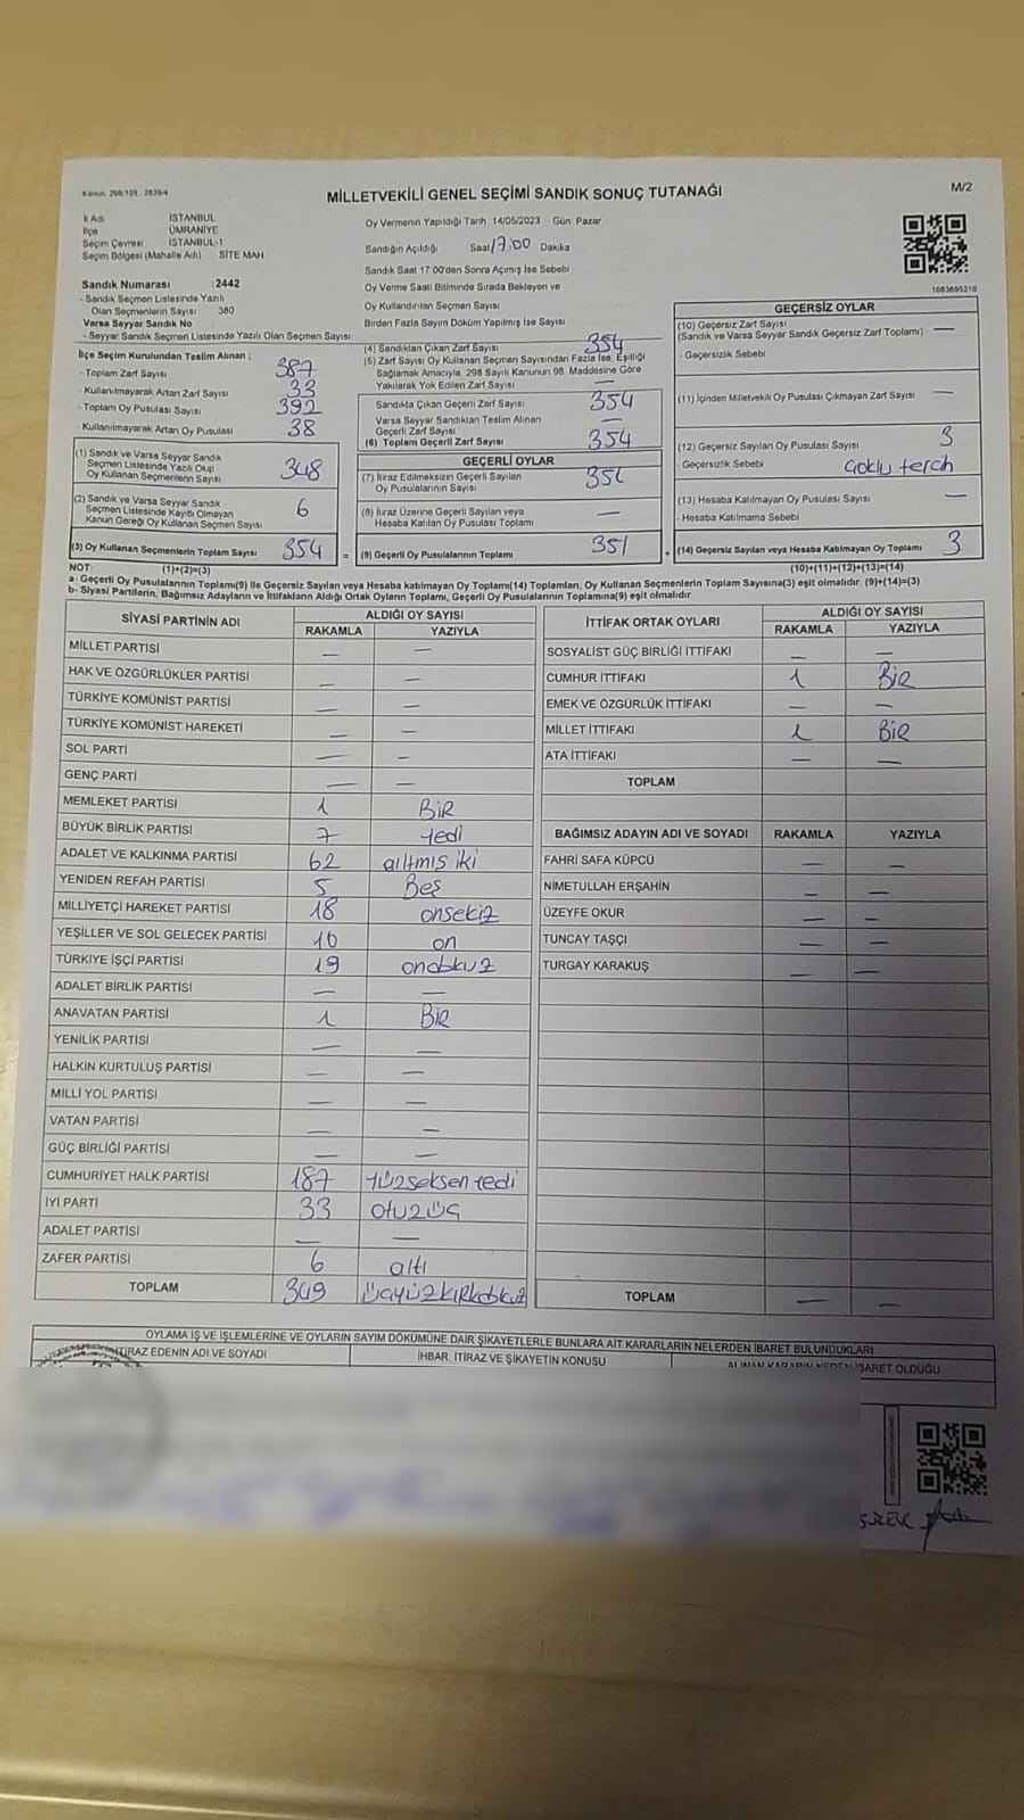 MİLLETVEKİLİ GENEL SEÇİMİ SANDIK SONUÇ TUTANAĞI
M/2
İSTANBUL
İlçe ÜMRANİYE
Seçim Çevresi İSTANBUL-1
Seçim Bölgesi (Mahalle Adı) SİTE MAH
Sandık Numarası :2442
- Sandık Seçmen Listesinde Yazılı
Olan Seçmenlerin Sayısı 380
Varsa Seyyar Sandık No
- Seyyar Sandık Seçmen Listesinde Yazılı Olan Seçmen Sayısı
Oy Vermenin Yapıldığı Tarih 14/05/2023 Gün: Pazar
Sandığın Açıldığı Saat 17:00 Dakika
Sandık Saat 17.00'den Sonra Açılmış İse Sebebi
Oy Verme Saati Bitiminde Sırada Bekleyen ve
Oy Kullandırılan Seçmen Sayısı
Birden Fazla Sayım Döküm Yapılmış İse Sayısı
İlçe Seçim Kurulundan Teslim Alınan :
- Toplam Zarf Sayısı 387
- Kullanılmayarak Artan Zarf Sayısı 33
- Toplam Oy Pusulası Sayısı 392
- Kullanılmayarak Artan Oy Pusulası 38
(1) Sandık ve Varsa Seyyar Sandık
Seçmen Listesinde Yazılı Olup
Oy Kullanan Seçmenlerin Sayısı 348
(2) Sandık ve Varsa Seyyar Sandık
Seçmen Listesinde Kayıtlı Olmayan
Kanun Gereği Oy Kullanan Seçmen Sayısı 6
(3) Oy Kullanan Seçmenlerin Toplam Sayısı 354
(4) Sandıktan Çıkan Zarf Sayısı 354
(5) Zarf Sayısı Oy Kullanan Seçmen Sayısından Fazla İse, Eşitliği
Sağlamak Amacıyla, 298 Sayılı Kanunun 98. Maddesine Göre
Yakılarak Yok Edilen Zarf Sayısı —
Sandıkta Çıkan Geçerli Zarf Sayısı 354
Varsa Seyyar Sandıktan Teslim Alınan
Geçerli Zarf Sayısı —
(6) Toplam Geçerli Zarf Sayısı 354
GEÇERLİ OYLAR
(7) İtiraz Edilmeksizin Geçerli Sayılan
Oy Pusulalarının Sayısı 351
(8) İtiraz Üzerine Geçerli Sayılan veya
Hesaba Katılan Oy Pusulası Toplamı —
= (9) Geçerli Oy Pusulalarının Toplamı 351
1083695210
GEÇERSİZ OYLAR
(10) Geçersiz Zarf Sayısı
(Sandık ve Varsa Seyyar Sandık Geçersiz Zarf Toplamı) —
- Geçersizlik Sebebi
(11) İçinden Milletvekili Oy Pusulası Çıkmayan Zarf Sayısı —
(12) Geçersiz Sayılan Oy Pusulası Sayısı 3
- Geçersizlik Sebebi Çoklu tercih
(13) Hesaba Katılmayan Oy Pusulası Sayısı —
- Hesaba Katılmama Sebebi
+ (14) Geçersiz Sayılan veya Hesaba Katılmayan Oy Toplamı 3
NOT: (1)+(2)=(3) (10)+(11)+(12)+(13)=(14)
a- Geçerli Oy Pusulalarının Toplamı(9) ile Geçersiz Sayılan veya Hesaba katılmayan Oy Toplamı(14) Toplamları, Oy Kullanan Seçmenlerin Toplam Sayısına(3) eşit olmalıdır. (9)+(14)=(3)
b- Siyasi Partilerin, Bağımsız Adayların ve İttifakların Aldığı Ortak Oyların Toplamı, Geçerli Oy Pusulalarının Toplamına(9) eşit olmalıdır.
SİYASİ PARTİNİN ADI ALDIĞI OY SAYISI
RAKAMLA YAZIYLA
MİLLET PARTİSİ — —
HAK VE ÖZGÜRLÜKLER PARTİSİ — —
TÜRKİYE KOMÜNİST PARTİSİ — —
TÜRKİYE KOMÜNİST HAREKETİ — —
SOL PARTİ — —
GENÇ PARTİ — —
MEMLEKET PARTİSİ 1 BİR
BÜYÜK BİRLİK PARTİSİ 7 Yedi
ADALET VE KALKINMA PARTİSİ 62 altmış iki
YENİDEN REFAH PARTİSİ 5 Beş
MİLLİYETÇİ HAREKET PARTİSİ 18 onsekiz
YEŞİLLER VE SOL GELECEK PARTİSİ 10 on
TÜRKİYE İŞÇİ PARTİSİ 19 ondokuz
ADALET BİRLİK PARTİSİ — —
ANAVATAN PARTİSİ 1 BİR
YENİLİK PARTİSİ — —
HALKIN KURTULUŞ PARTİSİ — —
MİLLİ YOL PARTİSİ — —
VATAN PARTİSİ — —
GÜÇ BİRLİĞİ PARTİSİ — —
CUMHURİYET HALK PARTİSİ 187 Yüzseksenyedi
İYİ PARTİ 33 otuzüç
ADALET PARTİSİ — —
ZAFER PARTİSİ 6 altı
TOPLAM 349 üçyüzkırkdokuz
İTTİFAK ORTAK OYLARI ALDIĞI OY SAYISI
RAKAMLA YAZIYLA
SOSYALİST GÜÇ BİRLİĞİ İTTİFAKI — —
CUMHUR İTTİFAKI 1 BİR
EMEK VE ÖZGÜRLÜK İTTİFAKI — —
MİLLET İTTİFAKI 1 BİR
ATA İTTİFAKI — —
TOPLAM
BAĞIMSIZ ADAYIN ADI VE SOYADI RAKAMLA YAZIYLA
FAHRİ SAFA KÜPCÜ — —
NİMETULLAH ERŞAHİN — —
ÜZEYFE OKUR — —
TUNCAY TAŞÇI — —
TURGAY KARAKUŞ — —
TOPLAM — —
OYLAMA İŞ VE İŞLEMLERİNE VE OYLARIN SAYIM DÖKÜMÜNE DAİR ŞİKAYETLERLE BUNLARA AİT KARARLARIN NELERDEN İBARET BULUNDUKLARI
İTİRAZ EDENİN ADI VE SOYADI İHBAR, İTİRAZ VE ŞİKAYETİN KONUSU ALINAN KARARIN NEDEN İBARET OLDUĞU